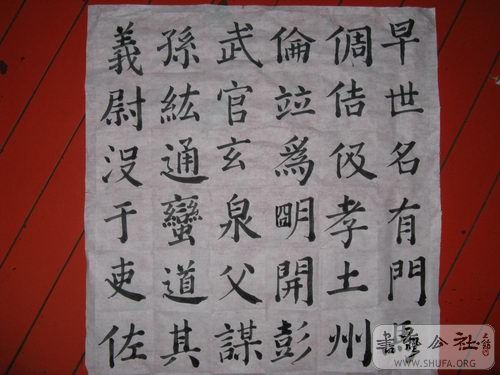 早世名有門
倜佶伋孝土州
倫竝爲朙開彭
武官玄泉父謀
孫紘通蠻道其
義尉没于吏佐
書藝公社
WWW.SHUFA.ORG